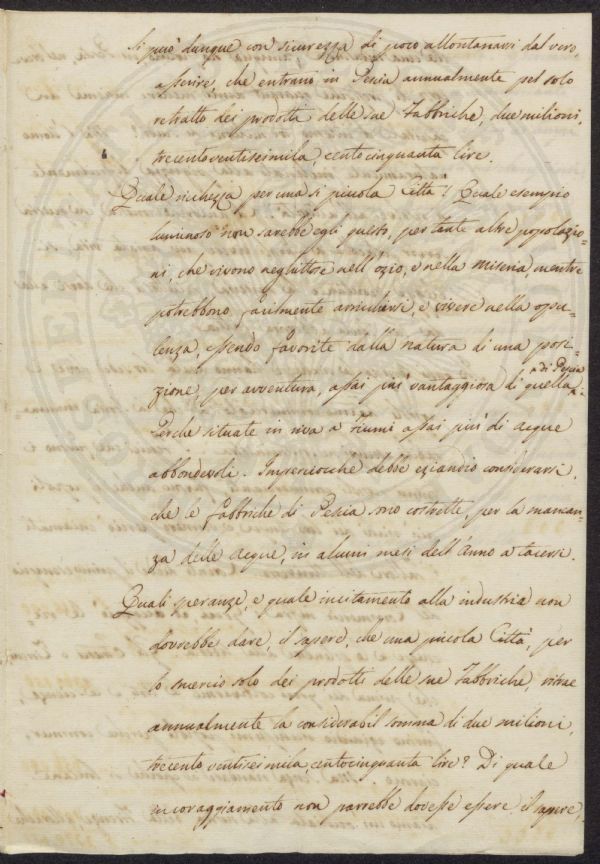 Si può dunque con sicurezza di poco allontanarsi dal vero,
asserire, che entrano in Pescia annualmente pel solo
retratto dei prodotti delle sue Fabbriche, due milioni,
trecentoventiseimila, centocinquanta lire.
Quale richezza per una si piccola Città! Quale esempio
luminoso non sarebbe egli questo, per tante altre popolazio=
ni, che vivono neghittose nell'ozio, e nella miseria, mentre
potrebbono facilmente arricchirsi, e vivere nella opu=
lenza, essendo favorite dalla natura di una posi=
zione, per avventura, assai più vantaggiosa di quella di Pescia.
Perche situate in riva a fiumi assai più di acque
abbondevoli. Imperciocchè debbe eziandio considerarsi,
che le fabbriche di Pescia sono costrette, per la mancan=
za delle acque, in alcuni mesi dell'Anno a tacersi.
Quali speranze, e quale incitamento alla industria non
dovrebbe dare, il sapere, che una piccola Città, per
lo smercio solo dei prodotti delle sue Fabbriche, ritrae
annualmente la considerabil somma di due milioni,
trecento ventiseimila, centocinquanta lire? Di quale
incoraggiamento non parrebbe dovesse essere il sapere,